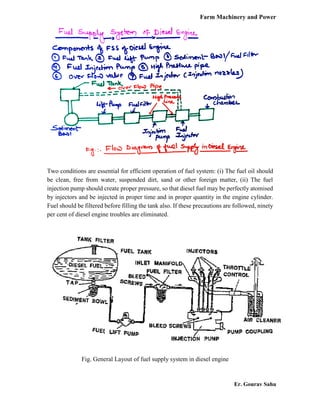 Farm Machinery and Power
Fuel Supply System of Diesel Engine
Components of FSS of Diesel Engine
① Fuel Tank ② Fuel Lift Pump ③ Sediment-Bowl/Fuel Filter
④ Fuel Injection Pump ⑤ High Pressure pipe
⑥ Over Flow valve ⑦ Fuel Injector (Injection nozzles)
Fuel Tank
over Flow Pipe
High Pressure
Line
Combustion
Chamber
Lift-Pump
Fuel Filter
Sediment-
Bowl
Injection
Pump
Fuel
Injector
Fig :- Flow Diagram of fuel Supply in diesel engine
Two conditions are essential for efficient operation of fuel system: (i) The fuel oil should
be clean, free from water, suspended dirt, sand or other foreign matter, (ii) The fuel
injection pump should create proper pressure, so that diesel fuel may be perfectly atomised
by injectors and be injected in proper time and in proper quantity in the engine cylinder.
Fuel should be filtered before filling the tank also. If these precautions are followed, ninety
per cent of diesel engine troubles are eliminated.
TANK FILTER
FUEL TANK
INJECTORS
INLET MANIFOLD
THROTTLE
CONTROL
DIESEL FUEL
BLEED
SCREWS
FILTER
TAP
SEDIMENT BOWL
AIR CLEANER
FUEL LIFT PUMP
BLEED SCREWS
PUMP COUPLING
INJECTION PUMP
Fig. General Layout of fuel supply system in diesel engine
Er. Gourav Sahu